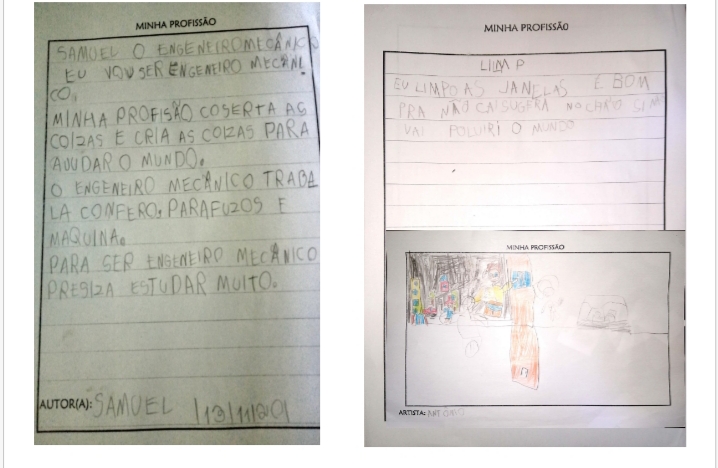 MINHA PROFISSÃO
SAMUEL O ENGENEIRO MECÂNICO
EU VOU SER ENGENEIRO MECÂNI
CO.
MINHA PROFISÃO COSERTA AS
COIZAS E CRIA AS COIZAS PARA
AUUDAR O MUNDO.
O ENGENEIRO MECÂNICO TRABA
LA CONFERO, PARAFUZOS E
MAQUINA.
PARA SER ENGENEIRO MECÂNICO
PRESIZA ESTUDAR MUITO.
AUTOR(A): SAMUEL 13/11/20
MINHA PROFISSÃO
LIMP
EU LIMPO AS JANELAS E BOM
PRA NÃO CAI SUGERA NO SI
VAI POLUIRI O MUNDO
MINHA PROFISSÃO
ARTISTA: ANTONIO